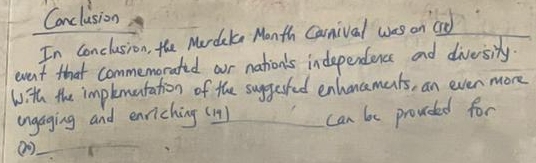 Conclusion
In Conclusion, the Merdeka Month Carnival was an (18)
event that commemorated our nation's independence and diversity.
With the implementation of the suggested enhancements, an even more
engaging and enriching (19) can be provided for
(20)